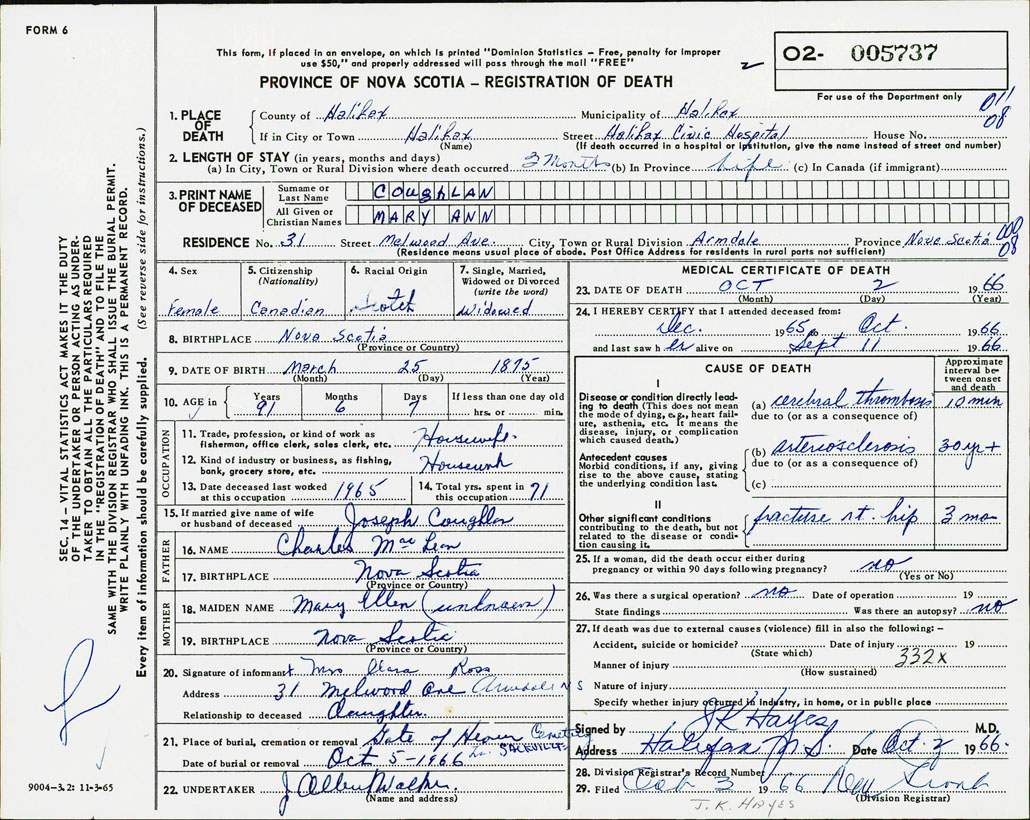 FORM 6
This form, if placed in an envelope, on which is printed "Dominion Statistics – Free, penalty for improper
use $50," and properly addressed will pass through the mail "FREE"
PROVINCE OF NOVA SCOTIA – REGISTRATION OF DEATH
02- 005737
For use of the Department only
011
08
1. PLACE OF DEATH
County of Halifax Municipality of Halifax
If in City or Town Halifax Street Halifax Civic Hospital House No.
(Name) (If death occurred in a hospital or institution, give the name instead of street and number)
2. LENGTH OF STAY (in years, months and days)
(a) In City, Town or Rural Division where death occurred 3 Months (b) In Province Life (c) In Canada (if immigrant)
3. PRINT NAME OF DECEASED
Surname or Last Name COUGHLAN
All Given or Christian Names MARY ANN
RESIDENCE No. 31 Street Melwood Ave. City, Town or Rural Division Armdale Province Nova Scotia
08
(Residence means usual place of abode. Post Office Address for residents in rural parts not sufficient)
4. Sex
Female
5. Citizenship
(Nationality)
Canadian
6. Racial Origin
Scotch
7. Single, Married, Widowed or Divorced
(write the word)
Widowed
8. BIRTHPLACE Nova Scotia
(Province or Country)
9. DATE OF BIRTH March 25 1875
(Month) (Day) (Year)
10. AGE in
Years Months Days If less than one day old
91 6 7 hrs. or min.
OCCUPATION
11. Trade, profession, or kind of work as
fisherman, office clerk, sales clerk, etc. Housewife.
12. Kind of industry or business, as fishing,
bank, grocery store, etc. Housework
13. Date deceased last worked
at this occupation 1965
14. Total yrs. spent in
this occupation 71
15. If married give name of wife
or husband of deceased Joseph Coughlan
FATHER
16. NAME Charles MacLean
17. BIRTHPLACE Nova Scotia
(Province or Country)
MOTHER
18. MAIDEN NAME Mary Ellen (unknown)
19. BIRTHPLACE Nova Scotia
(Province or Country)
20. Signature of informant Mrs Clara Ross
Address 31 Melwood Ave Armdale N S
Relationship to deceased Daughter.
21. Place of burial, cremation or removal Gate of Heaven Cemetery
Lr. SACKVILLE
Date of burial or removal Oct 5 - 1966
22. UNDERTAKER J Albert Walker
(Name and address)
MEDICAL CERTIFICATE OF DEATH
23. DATE OF DEATH OCT 2 1966
(Month) (Day) (Year)
24. I HEREBY CERTIFY that I attended deceased from:
Dec. 1965 to Oct. 1966
and last saw her alive on Sept 11 1966
CAUSE OF DEATH
Approximate interval between onset and death
I
Disease or condition directly leading to death (This does not mean the mode of dying, e.g., heart failure, asthenia, etc. It means the disease, injury, or complication which caused death.)
(a) cerebral thrombosis 10 min
due to (or as a consequence of)
Antecedent causes
Morbid conditions, if any, giving rise to the above cause, stating the underlying condition last.
(b) arteriosclerosis 30 yr +
due to (or as a consequence of)
(c)
II
Other significant conditions
contributing to the death, but not related to the disease or condition causing it.
fracture rt. hip 3 mo
25. If a woman, did the death occur either during
pregnancy or within 90 days following pregnancy? no
(Yes or No)
26. Was there a surgical operation? no Date of operation 19
State findings Was there an autopsy? no
27. If death was due to external causes (violence) fill in also the following: –
Accident, suicide or homicide? Date of injury 19
(State which)
332x
Manner of injury
(How sustained)
Nature of injury
Specify whether injury occurred in industry, in home, or in public place
Signed by J K Hayes M.D.
Address Halifax N.S. Date Oct. 2 1966.
28. Division Registrar's Record Number
29. Filed Oct 3 1966
(Division Registrar)
J.K. HAYES
SEC. 14 – VITAL STATISTICS ACT MAKES IT THE DUTY
OF THE UNDERTAKER OR PERSON ACTING AS UNDER-
TAKER TO OBTAIN ALL THE PARTICULARS REQUIRED
IN THE "REGISTRATION OF DEATH" AND TO FILE THE
SAME WITH THE DIVISION REGISTRAR WHO SHALL ISSUE THE BURIAL PERMIT.
WRITE PLAINLY WITH UNFADING INK. THIS IS A PERMANENT RECORD.
Every item of information should be carefully supplied. (See reverse side for instructions.)
9004-3.2: 11-3-65